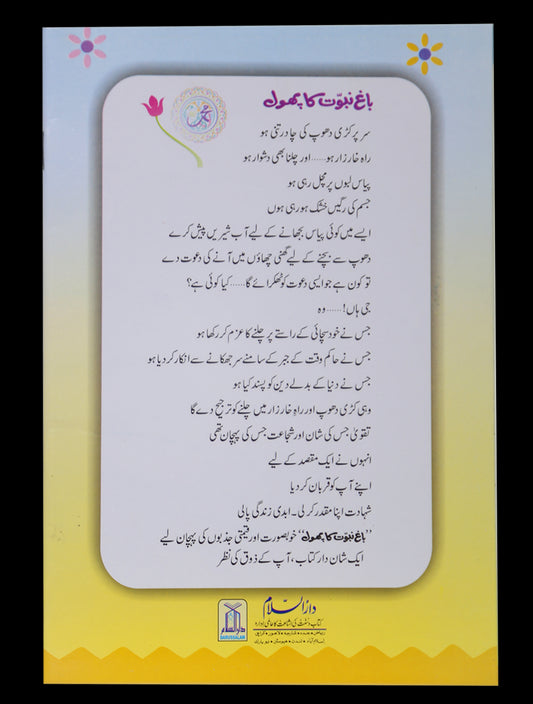 باغِ نبوّت کا پھول
محمد
سر پر کڑی دھوپ کی چادر تنی ہو
راہ خارزار ہو......اور چلنا بھی دشوار ہو
پیاس لبوں پر مچل رہی ہو
جسم کی رگیں خشک ہو رہی ہوں
ایسے میں کوئی پیاس بجھانے کے لیے آب شیریں پیش کرے
دھوپ سے بچنے کے لیے گھنی چھاؤں میں آنے کی دعوت دے
تو کون ہے جو ایسی دعوت کو ٹھکرائے گا......کیا کوئی ہے؟
جی ہاں!......وہ
جس نے خود سچائی کے راستے پر چلنے کا عزم کر رکھا ہو
جس نے حاکم وقت کے جبر کے سامنے سر جھکانے سے انکار کر دیا ہو
جس نے دنیا کے بدلے دین کو پسند کیا ہو
وہی کڑی دھوپ اور راہِ خارزار میں چلنے کو ترجیح دے گا
تقویٰ جس کی شان اور شجاعت جس کی پہچان تھی
انہوں نے ایک مقصد کے لیے
اپنے آپ کو قربان کر دیا
شہادت اپنا مقدر کر لی۔ ابدی زندگی پا لی
"باغِ نبوّت کا پھول" خوبصورت اور قیمتی جذبوں کی پہچان لیے
ایک شان دار کتاب، آپ کے ذوق کی نظر
دارالسلام
کتاب و سنت کی اشاعت کا عالمی ادارہ
ریاض • جدہ • شارجہ • لاہور • کراچی
اسلام آباد • لندن • ہیوسٹن • نیو یارک
دارالسلام
DARUSSALAM